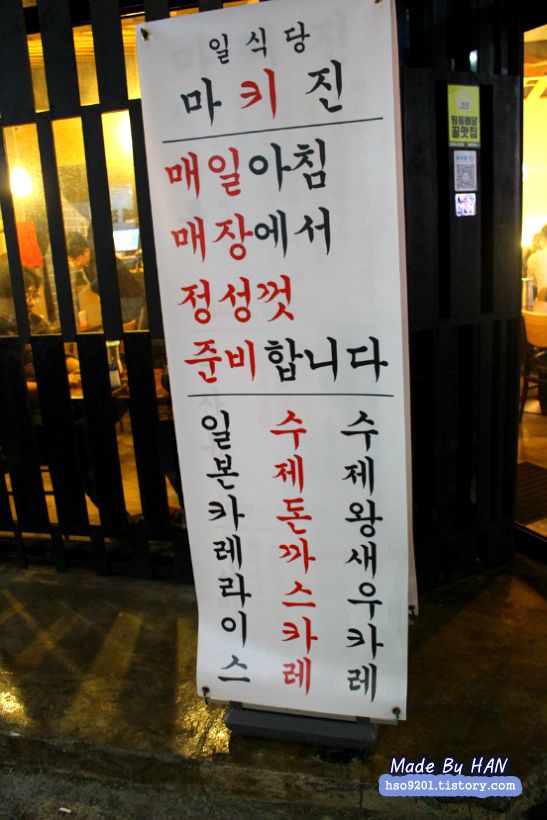 일식당
마키진
매일아침
매장에서
정성껏
준비합니다
일본카레라이스
수제돈까스카레
수제왕새우카레
띵동배달
꿀맛집
Made By HAN
hso9201.tistory.com